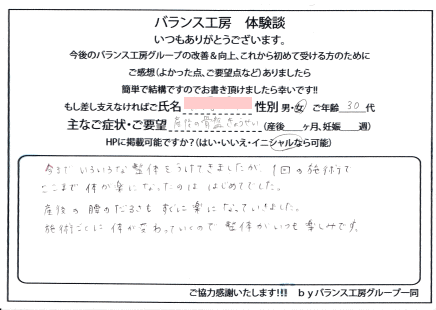 バランス工房 体験談
いつもありがとうございます。
今後のバランス工房グループの改善＆向上、これから初めて受ける方のために
ご感想（よかった点、ご要望点など）ありましたら
簡単で結構ですのでお書き頂けましたら幸いです!!
もし差し支えなければご氏名 性別 男・女 ご年齢 30 代
主なご症状・ご要望 産後の骨盤きょうせい （産後 ヶ月、妊娠 週）
HPに掲載可能ですか？（はい・いいえ・イニシャルなら可能）
今までいろいろな整体をうけてきましたが、1回の施術で
ここまで体が楽になったのははじめてでした。
産後の腰のだるさもすぐに楽になっていきました。
施術ごとに体が変わっていくので整体がいつも楽しみです。
ご協力感謝いたします!!! byバランス工房グループ一同